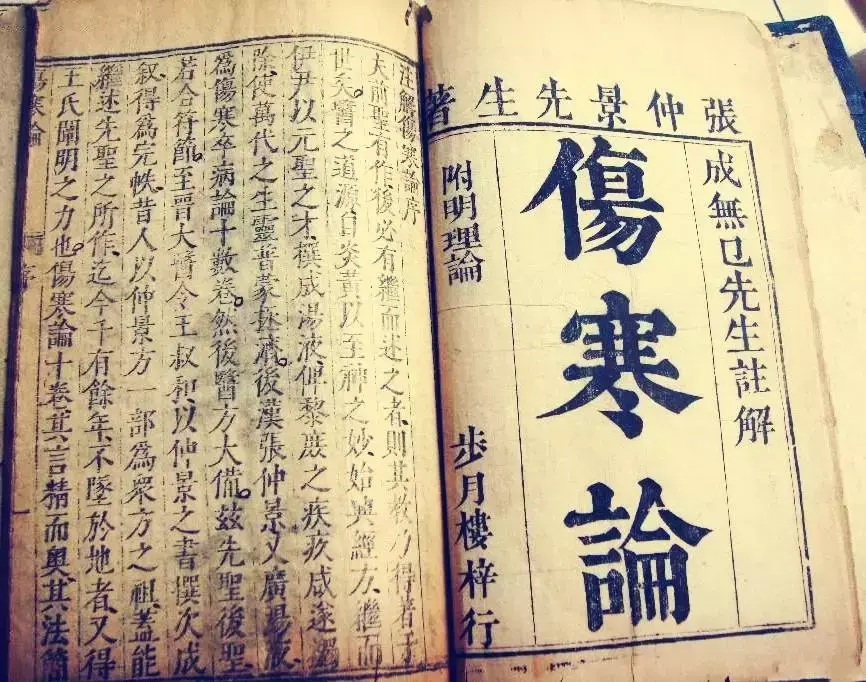 張仲景先生著
成無已先生註解
傷寒論
附明理論
步月樓梓行
注解傷寒論序
夫前聖有作後必有繼而述之者則其教乃得著于
世矣。醫之道源自炎黃以至神之妙始興經方。繼而
伊尹以元聖之才撰成湯液俾黎庶之疾疢咸遂蠲
除使萬代之生靈普蒙拯濟。後漢張仲景又廣湯液
為傷寒卒病論十數卷。然後醫方大備。茲先聖後聖
若合符節。至晉大醫令王叔和以仲景之書撰次成
叙得為完帙。昔人以仲景方一部為眾方之祖蓋能
繼述先聖之所作迄今千有餘年不墜於地者又得
王氏闡明之力也。傷寒論十卷其言精而奧其法簡
傷寒論
序